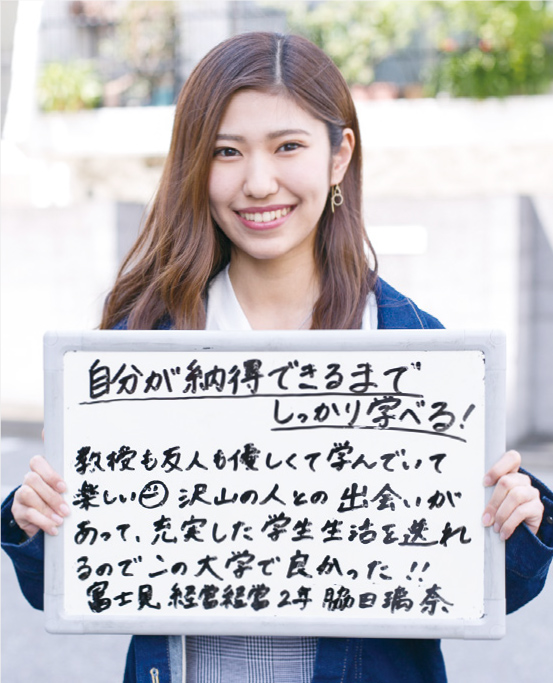 自分が納得できるまで
しっかり学べる!
教授も友人も優しくて学んでいて
楽しい☺ 沢山の人との出会いが
あって、充実した学生生活を送れ
るのでこの大学で良かった!!
富士見 経営経営2年 脇田璃奈